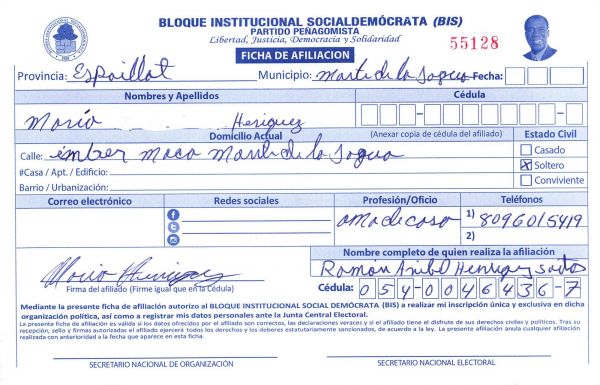 BLOQUE INSTITUCIONAL SOCIALDEMÓCRATA (BIS)
PARTIDO PEÑAGOMISTA
Libertad, Justicia, Democracia y Solidaridad
55128
FICHA DE AFILIACION
Provincia: Espaillat Municipio: Monte de la Jagua Fecha:
Nombres y Apellidos Cédula
María Heriquez
Domicilio Actual (Anexar copia de cédula del afiliado) Estado Civil
Calle: imber Moca Monte de la Jagua Casado
#Casa / Apt. / Edificio: X Soltero
Barrio / Urbanización: Conviviente
Correo electrónico Redes sociales Profesión/Oficio Teléfonos
ama de casa 1) 8096015419
2)
Nombre completo de quien realiza la afiliación
María Heriquez Ramon Anibal Henriquez Santos
Firma del afiliado (Firme igual que en la Cédula) Cédula: 054-0046436-7
Mediante la presente ficha de afiliación autorizo al BLOQUE INSTITUCIONAL SOCIAL DEMÓCRATA (BIS) a realizar mi inscripción única y exclusiva en dicha
organización política, así como a registrar mis datos personales ante la Junta Central Electoral.
La presente ficha de afiliación es válida si los datos ofrecidos por el afiliado son correctos, las declaraciones veraces y si el afiliado tiene el disfrute de sus derechos civiles y políticos. Tras su
recepción, sello y firmas autorizadas el afiliado ejercerá todos los derechos y los deberes estatutariamente sancionados, de acuerdo a la ley. La presente afiliación anula cualquier afiliación
realizada con anterioridad a la fecha que aparece en esta ficha.
SECRETARIO NACIONAL DE ORGANIZACIÓN SECRETARIO NACIONAL ELECTORAL